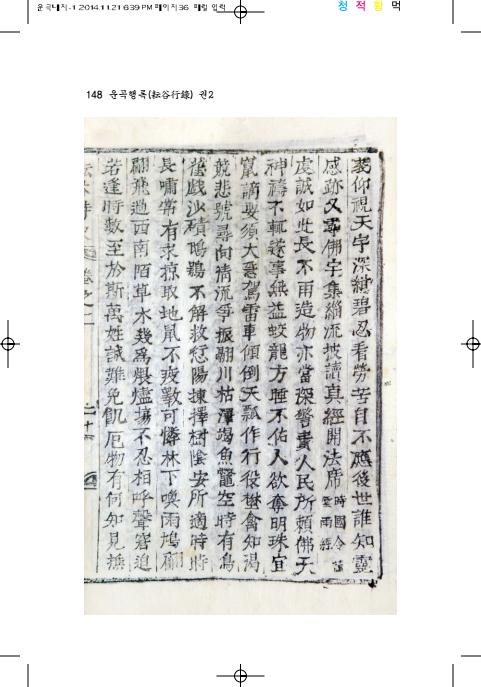 2014.11.21 6:39 PM 페이지36
청 적 황 먹
148 운곡행록(耘谷行錄) 권2
仰視天宇深紺碧忍看勞苦自不應後世誰知靈
感跡又 佛宇集緇流披讀眞經開法席 時國令 雲雨經
虔誠如此長不雨造物亦當深警責人民所賴佛天
神禱不輒遂事無益蛟龍方睡不佑人欲奪明珠宜
竄謫要須大怒駕雷車傾倒天瓢作行役 禽知渴
競悲號尋向淸流爭振翮川枯澤渴魚鼈空時有鳥
鳶戱沙磧鳴 不解救愆陽揀擇樹陰安所適時時
長嘯常有求掠取地鼠不疲斁可憐林下喚雨鳩翩
翩飛過西南陌草木幾爲煨燼場不忍相呼聲窘迫
若逢時數至於斯萬姓誠難免飢厄物有何知見
卷之二
二十